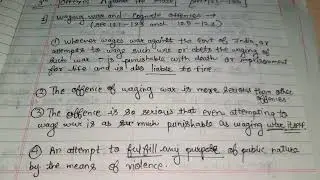 Offences Against the State
1) Waging war and Cognate offences →
(sec 121 - 123 and 125 -
① Whoever wages war against the Govt of India, or
attempts to wage such war or abets the waging of
such war + is punishable with death or imprisonment
for life and is also liable to fine.
② The offence of waging war is more serious than other
offences
③ The offence is so serious that even attempting to
wage war is as much punishable as waging war itself
④ An attempt to fulfill any purpose of public nature
by the means of violence.